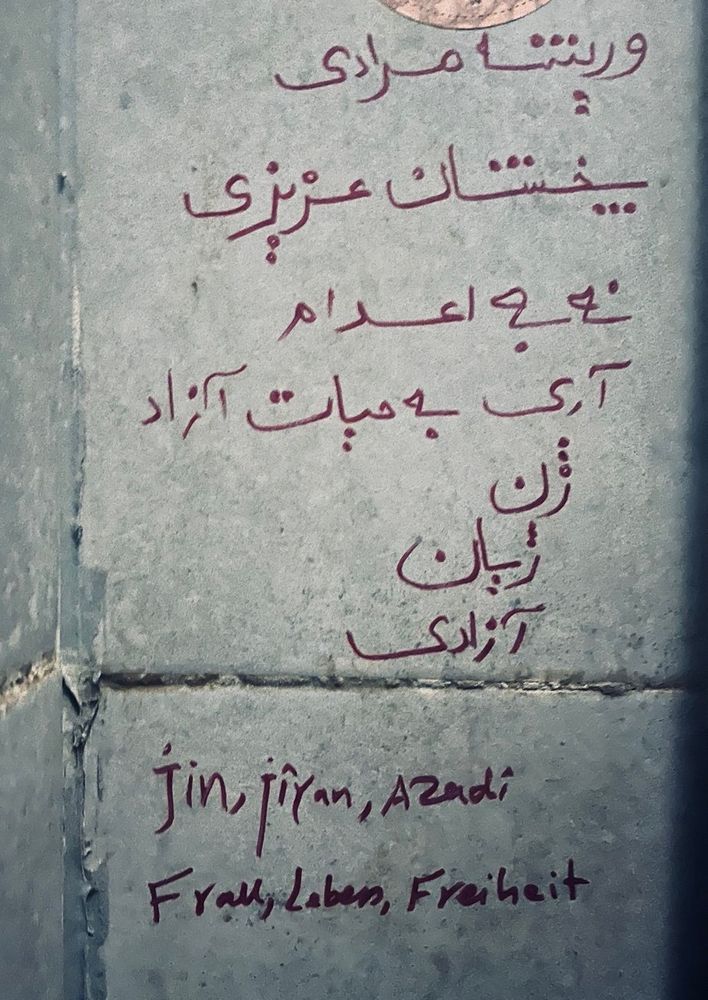 وریشه مرادی
پخشان عزیزی
نه به اعدام
آری به حیات آزاد
ژن
ژیان
آزادی
Jin, jîyan, Azadî
Frau, Leben, Freiheit